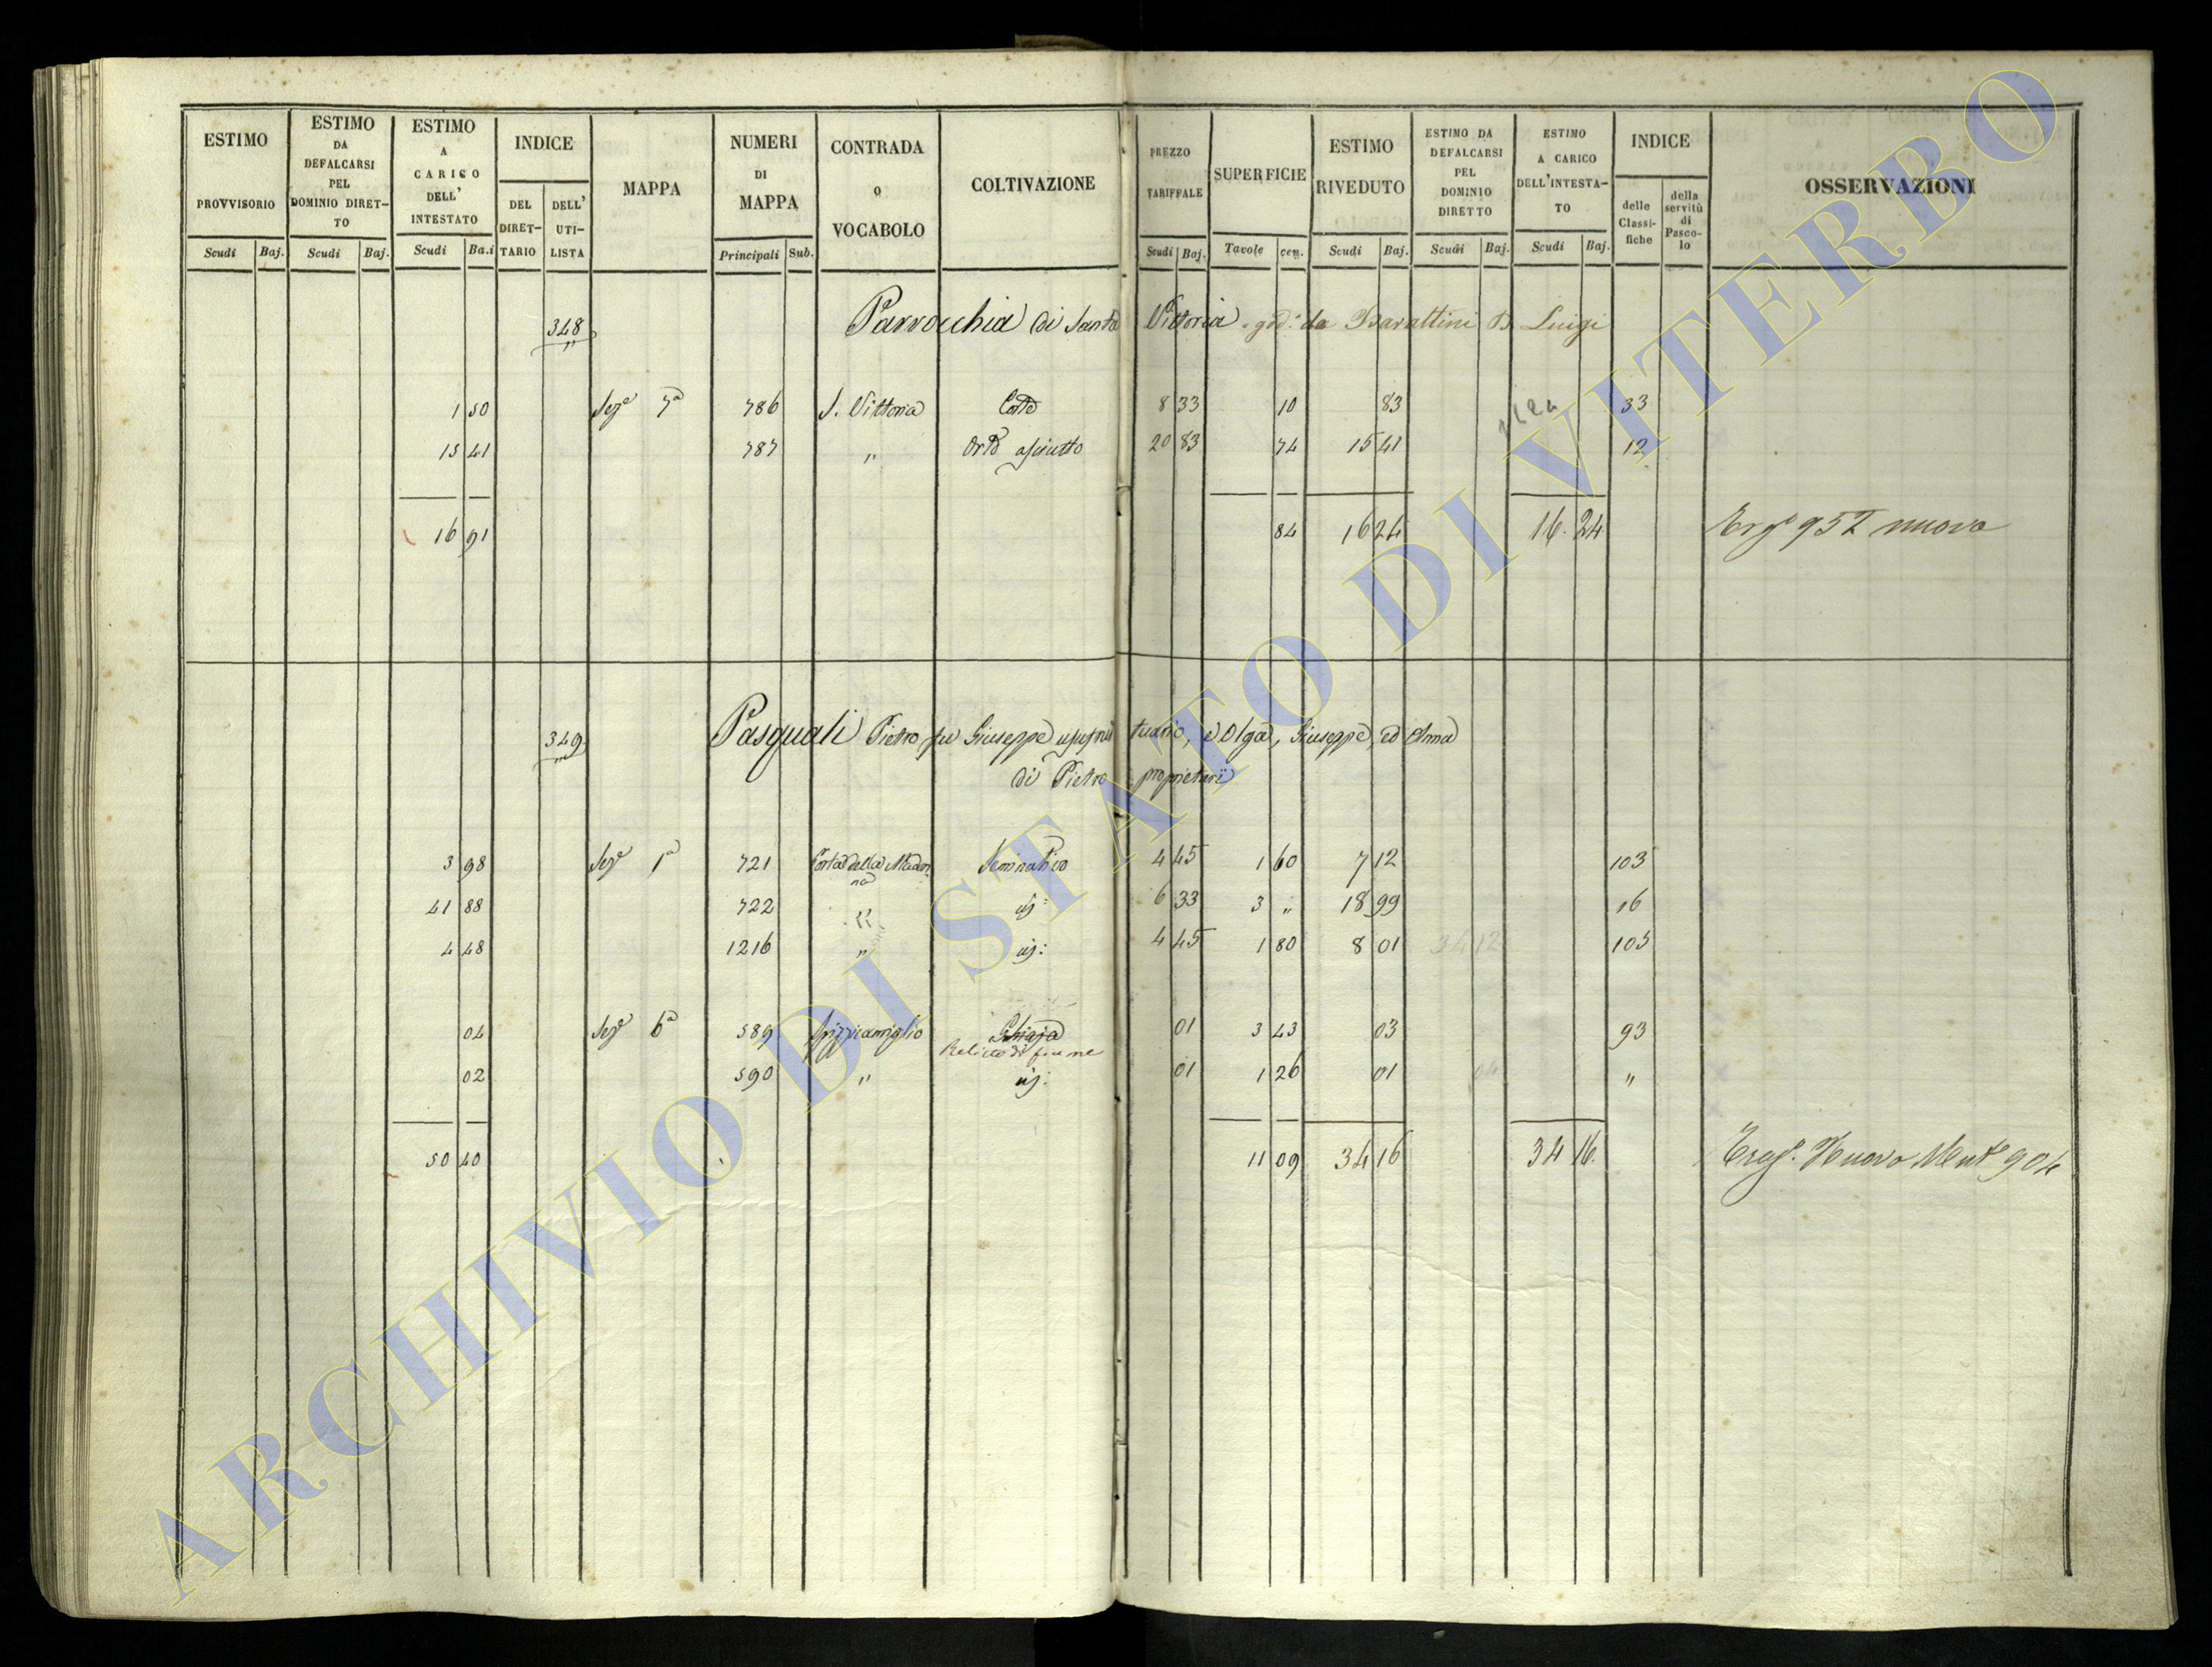 ESTIMO PROVVISORIO Scudi Baj.
ESTIMO DA DEFALCARSI PEL DOMINIO DIRET-TO Scudi Baj.
ESTIMO A CARICO DELL' INTESTATO Scudi Ba.i
INDICE DEL DIRET-TARIO DELL' UTI-LISTA
MAPPA
NUMERI DI MAPPA Principali Sub.
CONTRADA o VOCABOLO
COLTIVAZIONE
PREZZO TARIFFALE Scudi Baj.
SUPERFICIE Tavole cen.
ESTIMO RIVEDUTO Scudi Baj.
ESTIMO DA DEFALCARSI PEL DOMINIO DIRETTO Scudi Baj.
ESTIMO A CARICO DELL'INTESTA-TO Scudi Baj.
INDICE delle Classi-fiche della servitù di Pasco-lo
OSSERVAZIONI
348 Parrocchia di Santa Vittoria god. da Barattini D Luigi
1 50 Sez.e 7a 786 S. Vittoria Corte 8 33 10 83 33
15 41 787 " Orto asciutto 20 83 74 15 41 12
16 91 84 16 24 16. 24 nuovo
349 Pasquali Pietro fu Giuseppe usufrut tuario, e Olga, Giuseppe, ed Anna
di Pietro proprietarii
3 98 Sez.e 1a 721 Porta della Madon na Seminativo 4 45 1 60 7 12 103
41 88 722 " id: 6 33 3 " 18 99 16
4 48 1216 " id: 4 45 1 80 8 01 34 12 103
04 Sez.e 6a 589 Spizzicamiglio Ghiaja 01 3 43 03 93
Relitto di fiume
02 590 " id: 01 1 26 01 04 "
50 40 11 09 34 16 34 16. Nuovo 904
ARCHIVIO DI STATO DI VITERBO